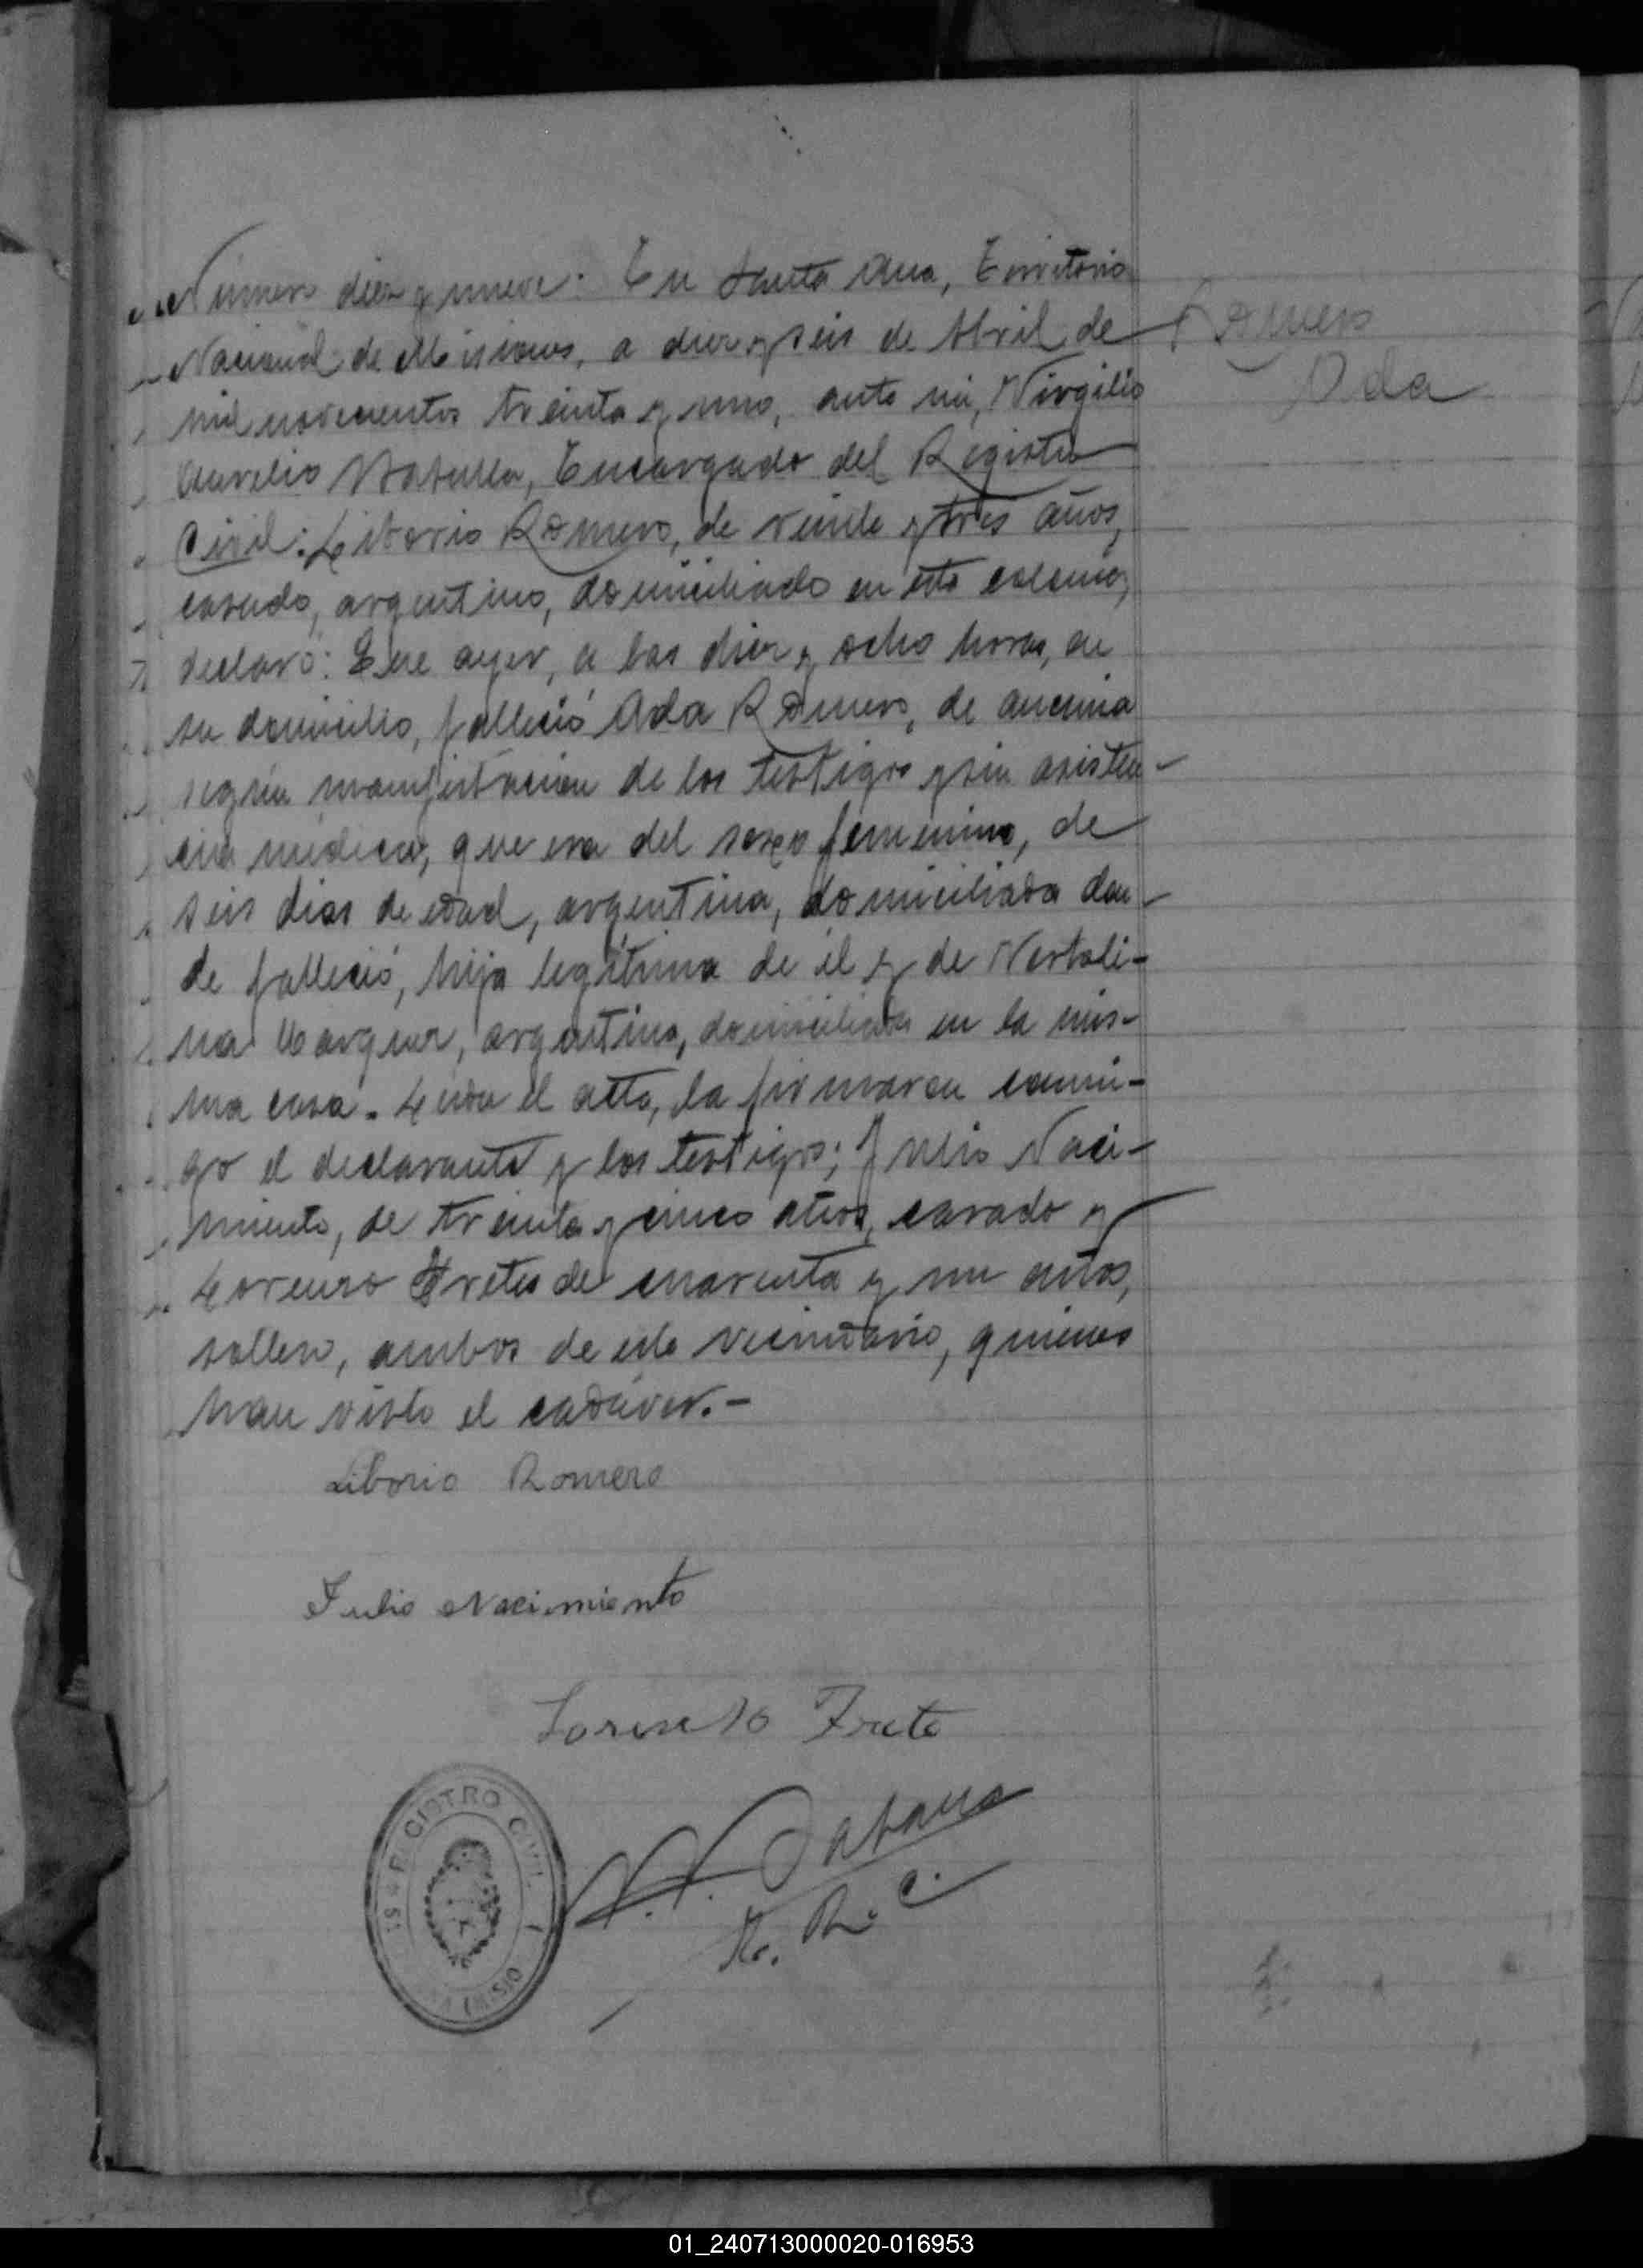 Número diez y nueve: En Santa Ana, Territorio
Nacional de Misiones, a diez y seis de Abril de
mil novecientos treinta y uno, ante mi, Virgilio
Aurelio Encargado del Registro
Civil: Liborio Romero, de veinte y tres años,
casado, argentino, domiciliado en esta colonia,
declaró: Que ayer, a las diez y ocho horas, en
su domicilio, falleció Ada Romero, de anemia
según manifestación de los testigos y sin asisten-
cia médica, que era del sexo femenino, de
seis dias de edad, argentina, domiciliada don-
de falleció, hija legítima de él y de Nertali-
na argentina, domiciliada en la mis-
ma casa. Leida el acta, la firmaron conmi-
go el declarante y los testigos; Julio Naci-
miento, de treinta y cinco años, casado y
Lorenzo Fretes de cuarenta y un años,
soltero, ambos de este vecindario, quienes
han visto el cadáver.-
Romero
Ada
Liborio Romero
Julio Nacimiento
Lorenzo Frete
REGISTRO CIVIL
R. C.
01_240713000020-016953